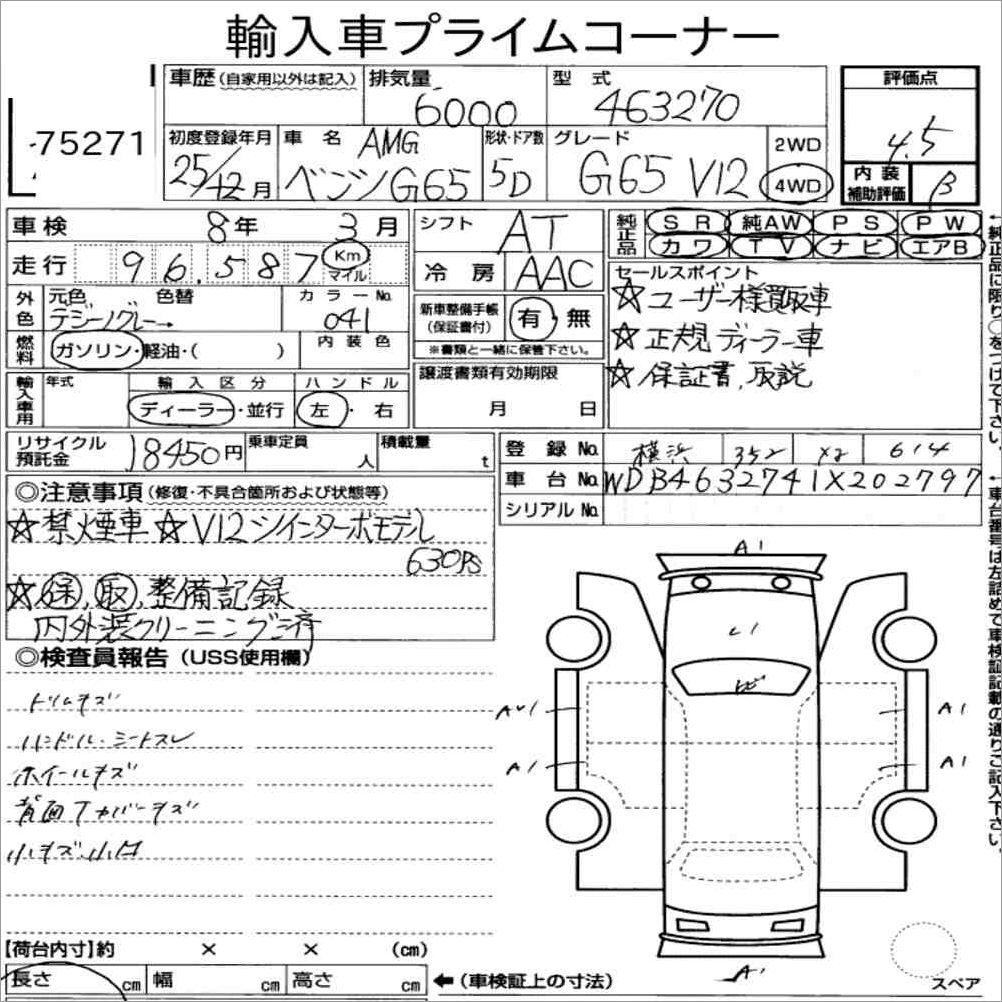 輸入車プライムコーナー
75271
車歴 (自家用以外は記入) 排気量 6000 型式 463270 評価点 4.5
初度登録年月 25/12月 車名 AMG ベンツG65 形状・ドア数 5D グレード G65 V12 2WD 4WD 内装補助評価 B
車検 8年 3月 シフト AT 純正品 SR 純AW PS PW
カワ TV ナビ エアB
走行 96,587 Km マイル 冷房 AAC
外色 元色 色替 カラーNo. 041 内装色
新車整備手帳 (保証書付) 有・無
※書類と一緒に保管下さい。
燃料 ガソリン・軽油・( )
セールスポイント
☆ユーザー様買取車
☆正規ディーラー車
☆保証書,取説
輸入車用 年式 輸入区分 ディーラー・並行 ハンドル 左・右
譲渡書類有効期限 月 日
リサイクル預託金 18450円 乗車定員 人 積載量 t
登録No. 横浜 352 614
車台No. WDB4632741X202797
シリアルNo.
◎注意事項 (修復・不具合箇所および状態等)
☆禁煙車 ☆V12ツインターボモデル
630PS
☆保,取,整備記録
内外装クリーニング済
◎検査員報告 (USS使用欄)
ドリムキズ
ハンドル・シートスレ
ホイールキズ
背面Tカバーキズ
小キズ,小凹
A1
A1
A1
A1
A1
【荷台内寸】約 × × (cm)
長さ cm 幅 cm 高さ cm
←(車検証上の寸法)
スペア
↓純正品に限り○をつけて下さい。
↓車台番号は左詰めで車検証記載の通りご記入下さい。